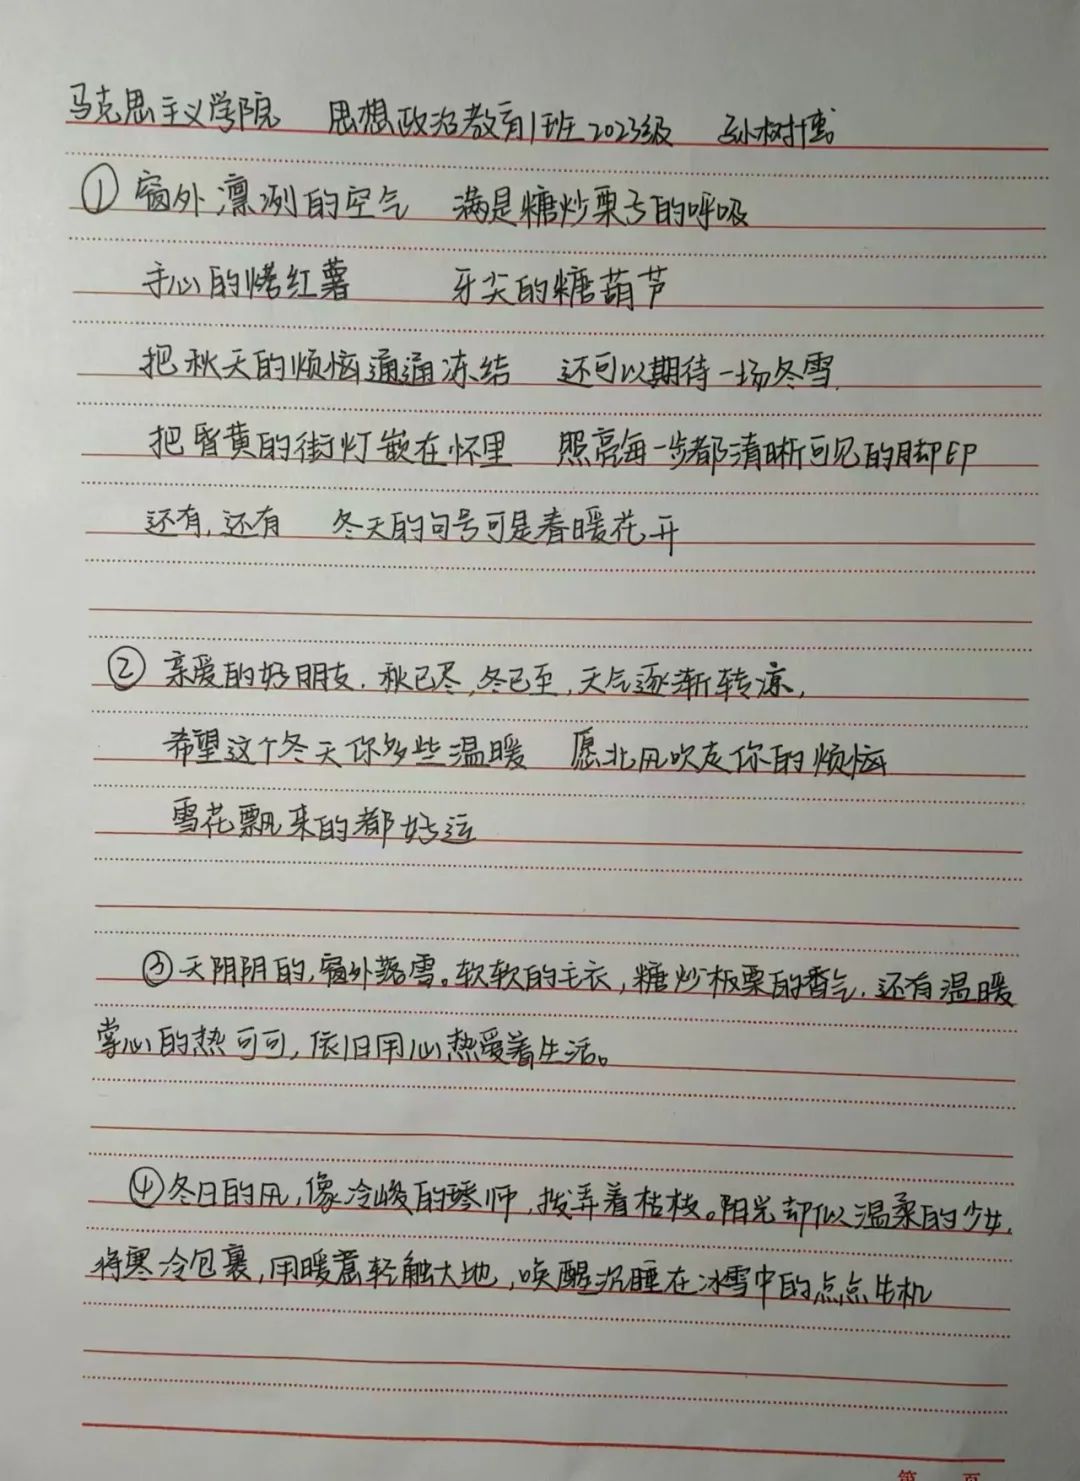 马克思主义学院 思想政治教育1班2023级 孙树博
① 窗外凛冽的空气 满是糖炒栗子的呼吸
手心的烤红薯 牙尖的糖葫芦
把秋天的烦恼通通冻结 还可以期待一场冬雪.
把昏黄的街灯嵌在怀里 照亮每一步都清晰可见的脚印
还有,还有 冬天的句号可是春暖花开
② 亲爱的好朋友.秋已尽,冬已至,天气逐渐转凉,
希望这个冬天你多些温暖 愿北风吹走你的烦恼
雪花飘来的都好运
③天阴阴的,窗外落雪。软软的毛衣,糖炒板栗的香气.还有温暖
掌心的热可可,依旧用心热爱着生活。
④冬日的风,像冷峻的琴师,拨弄着枯枝。阳光却似温柔的少女,
将寒冷包裹,用暖意轻触大地,唤醒沉睡在冰雪中的点点生机
第 页